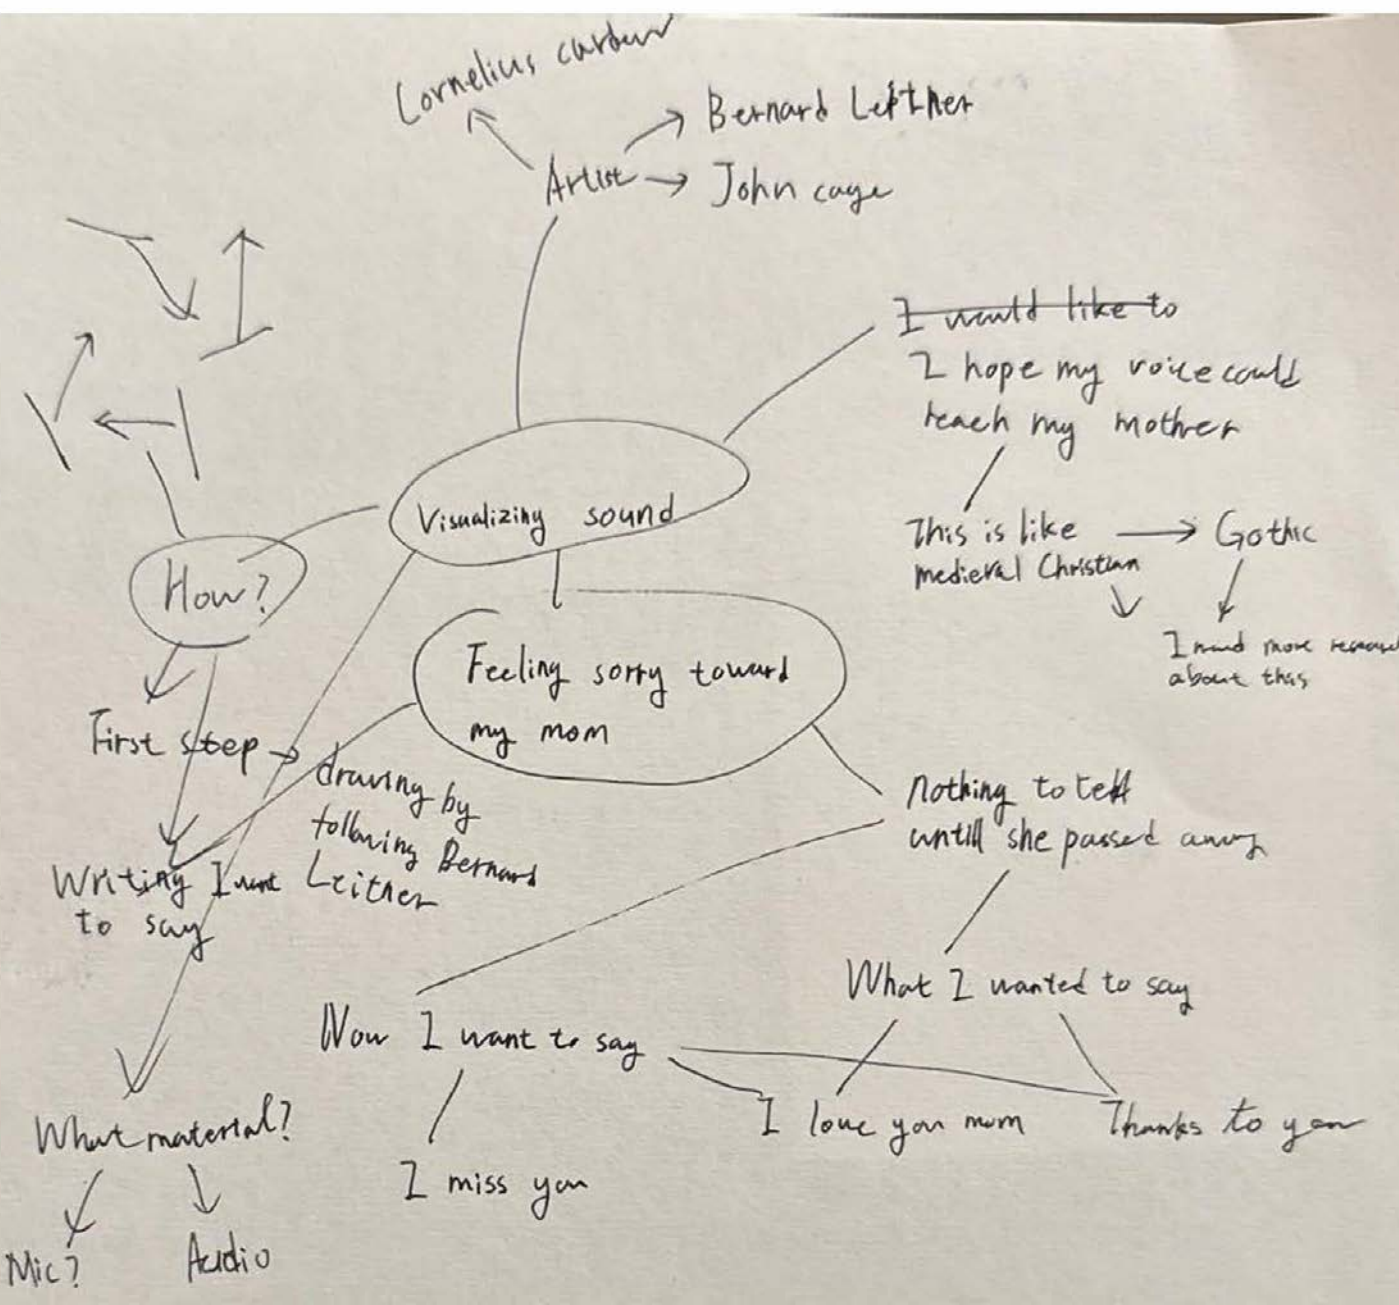 Cornelius cardew
Bernard Leitner
Artist
John cage
I would like to
I hope my voice could
reach my mother
Visualizing sound
This is like
medieval Christian
Gothic
I need more research
about this
How?
Feeling sorry toward
my mom
First step
drawing by
following Bernard
Leither
Nothing to tell
untill she passed away
Writing I want
to say
What I wanted to say
Now I want to say
I love you mum
Thanks to you
I miss you
What material?
Mic?
Audio